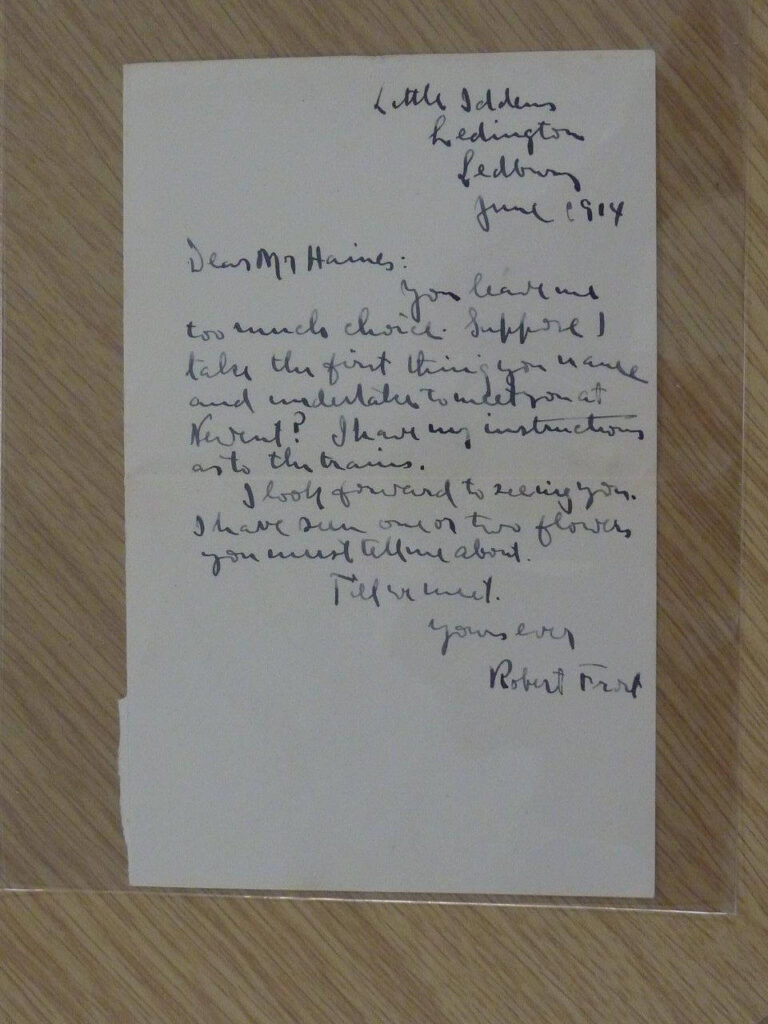 Little Iddens
Ledington
Ledbury
June 1914
Dear Mr Haines:
You leave me
too much choice. Suppose I
take the first thing you name
and undertake to meet you at
Newent? I have my instructions
as to the trains.
I look forward to seeing you.
I have seen one or two flowers
you must tell me about.
Till we meet.
Yours ever
Robert Frost